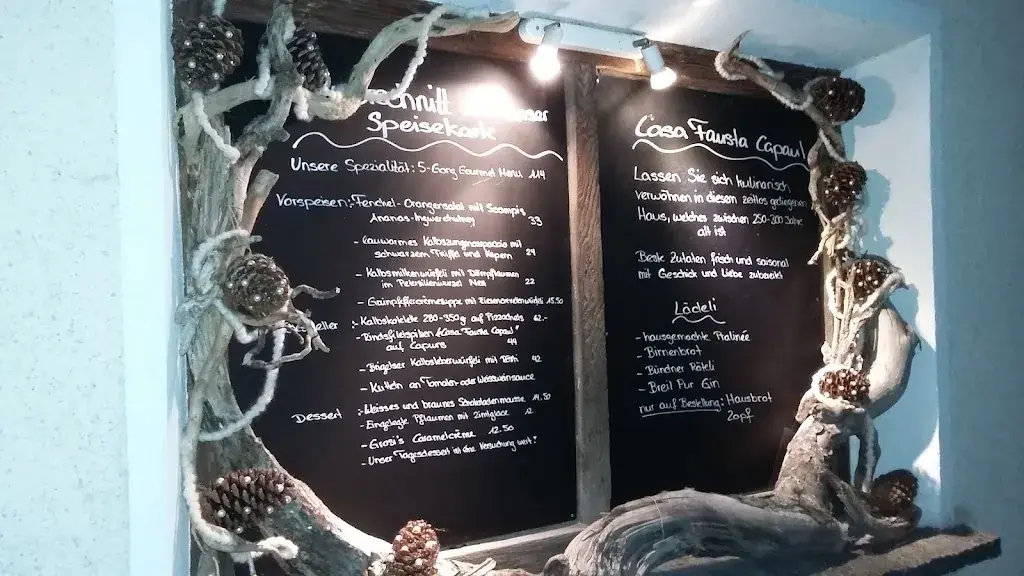 Speisekarte
Unsere Spezialität: 5-Gang Gourmet Menu 114
Vorspeisen: Fenchel-Orangensalat mit Scampis
Ananas-Ingwerchutney 33
- Lauwarmes Kalbszungencarpaccio mit
schwarzem Trüffel und Kapern 24
- Kalbsmilkenwürfeli mit Dörrpflaumen
im Petersilienwurzel Nest 22
- Grünpfefferrahmsuppe mit 15.50
- Kalbskotelette 280-350g auf Pizzochels 62.-
- Rindsfiletspitzen "Casa Fausta Capaul"
auf Capuns 44
- Brigelser Kalbsleberwürfeli mit Rösti 42
- Kutteln an Tomaten- oder Weissweinsauce
Dessert :- Weisses und braunes Schokoladenmousse 14.50
- Eingelegte Pflaumen mit Zimtglace 12
- Grosi's Caramelcrème 12.50
- Unser Tagesdessert ist eine Versuchung wert!
Casa Fausta Capaul
Lassen Sie sich kulinarisch
verwöhnen in diesem zeitlos gediegenen
Haus, welches zwischen 250-300 Jahre
alt ist
Beste Zutaten frisch und saisonal
mit Geschick und Liebe zubereitet
Lädeli
- hausgemachte Pralinée
- Birnenbrot
- Bündner Röteli
- Breil Pur Gin
nur auf Bestellung: Hausbrot
Zopf